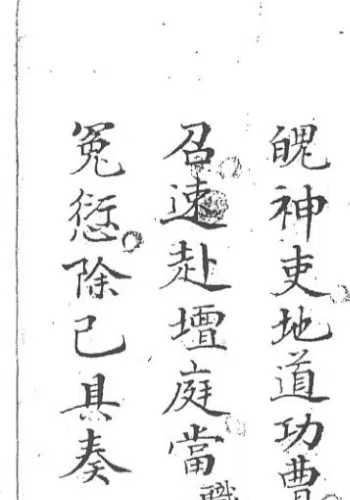 魄神吏地道功曹
召速赴壇庭當職
冤愆除已具奏